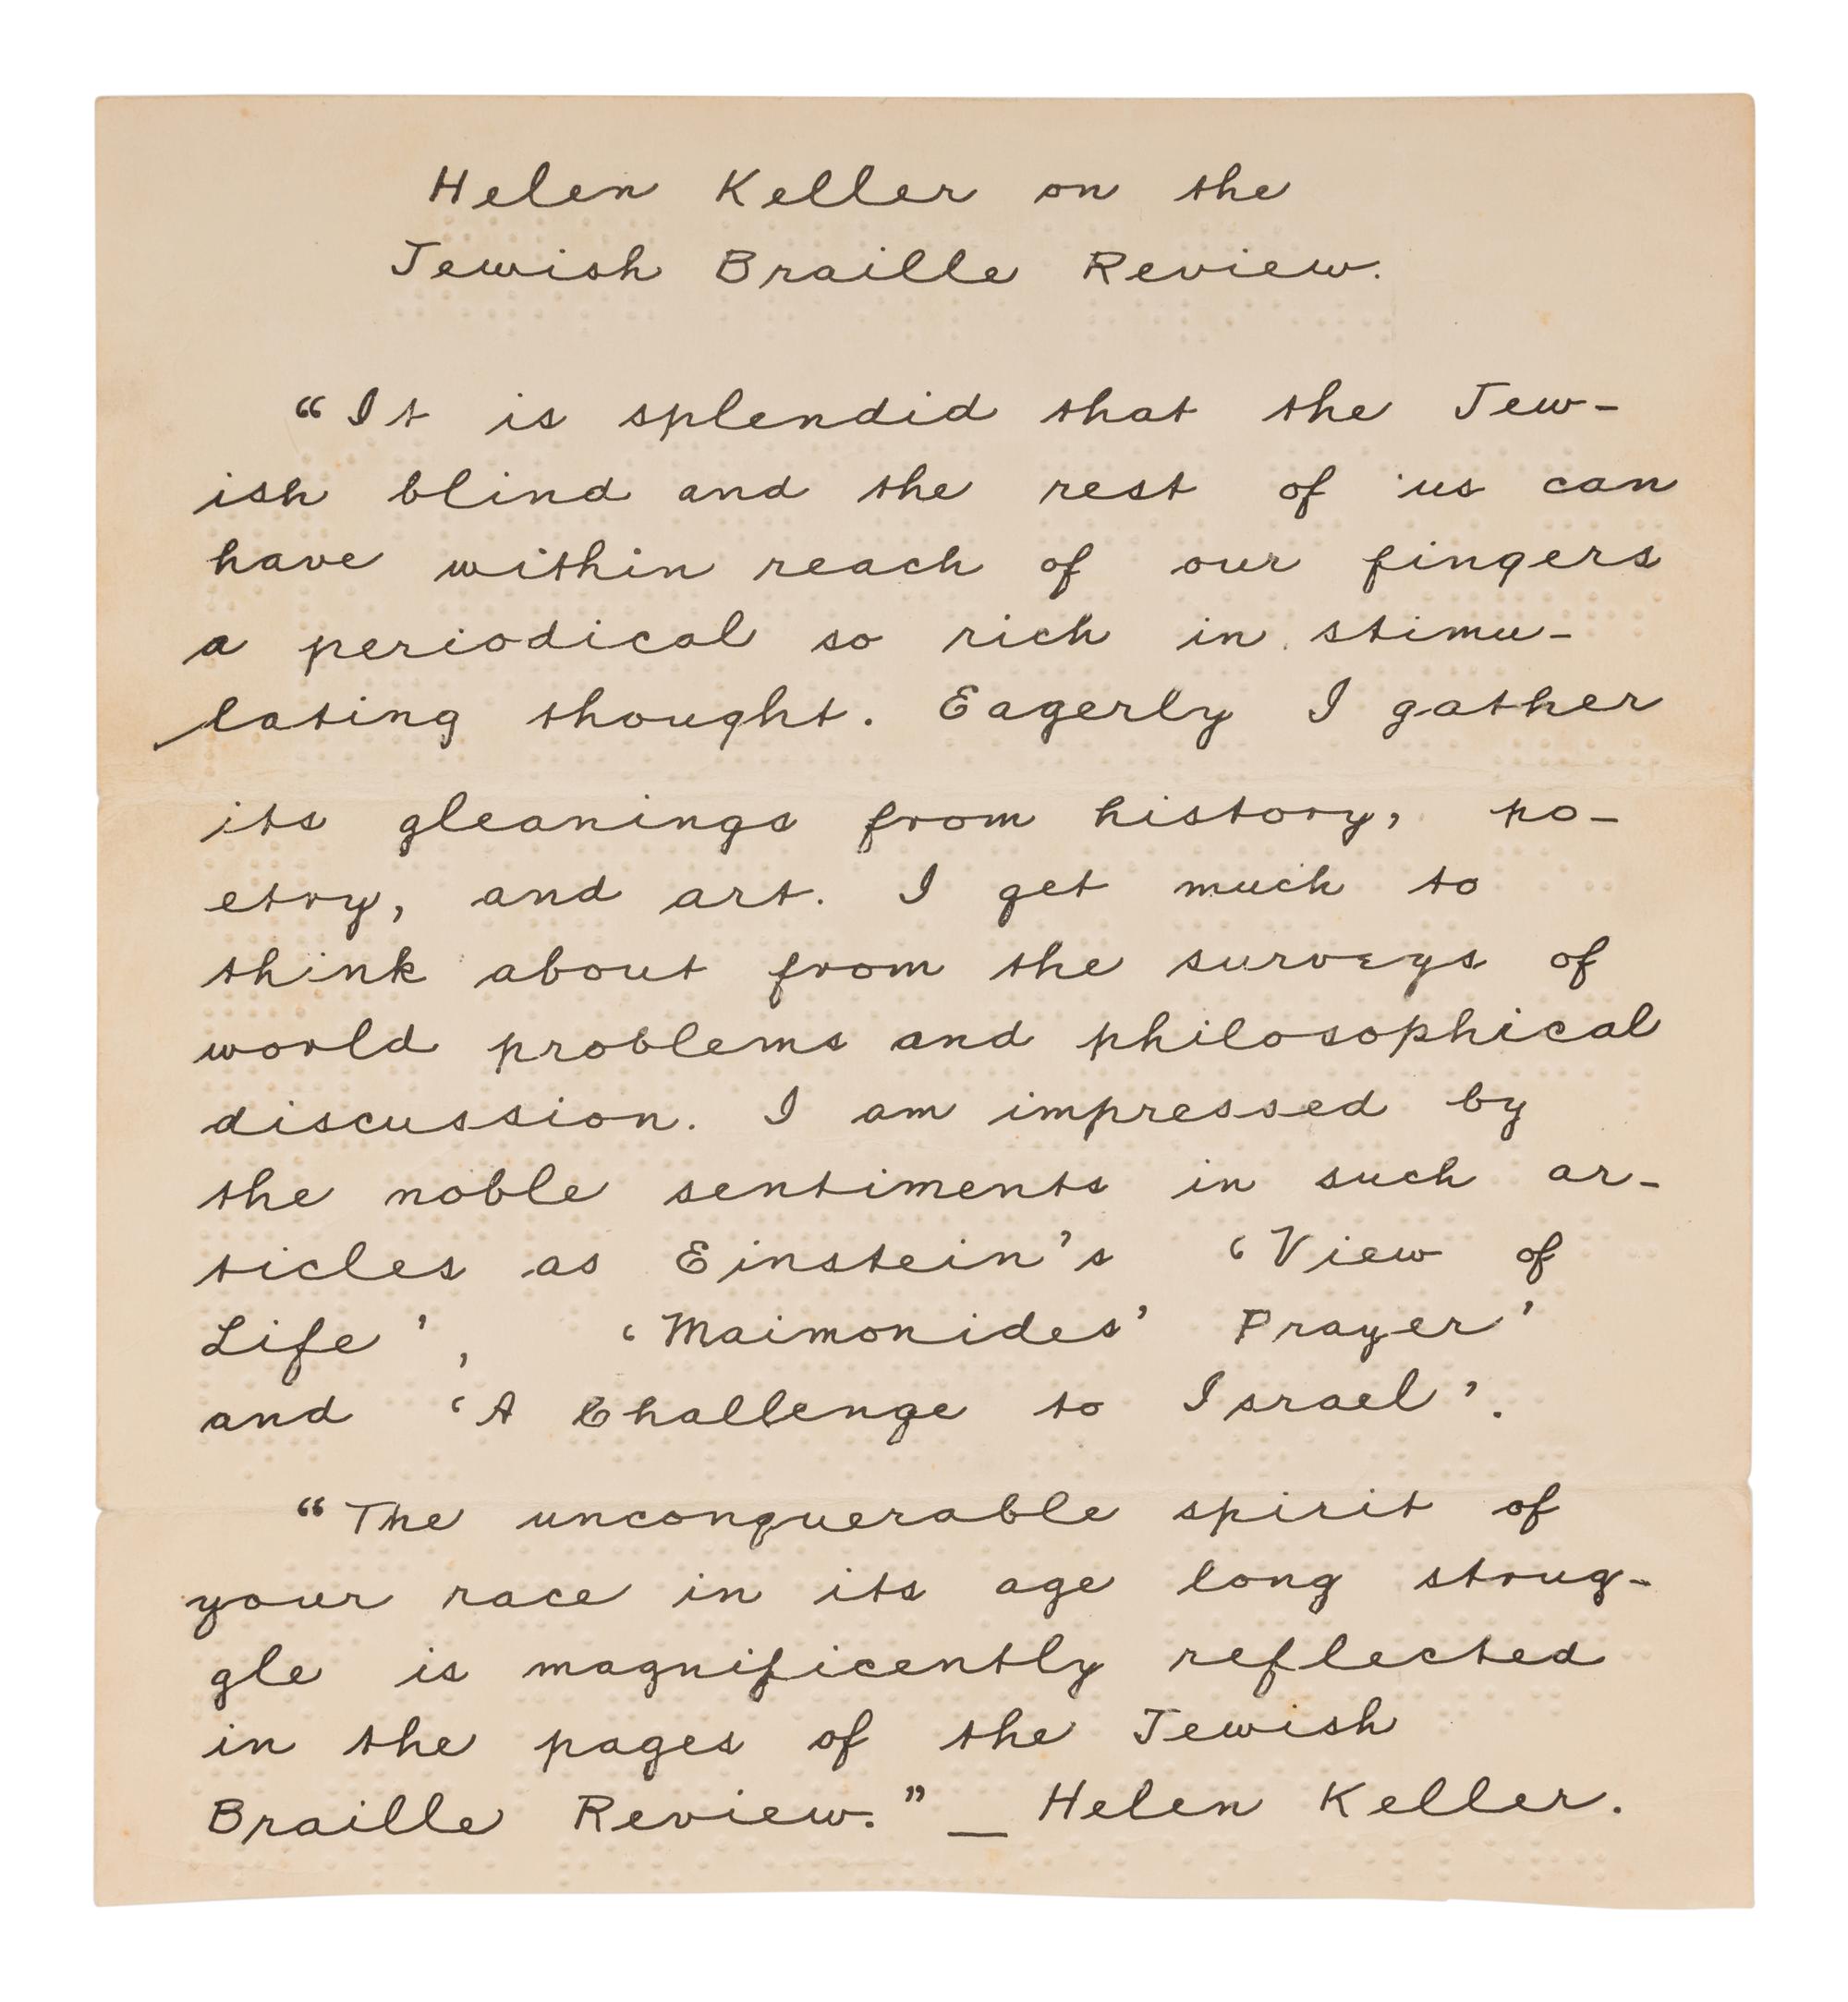 Helen Keller on the
Jewish Braille Review.
“It is splendid that the Jew-
ish blind and the rest of us can
have within reach of our fingers
a periodical so rich in stimu-
lating thought. Eagerly I gather
its gleanings from history, po-
etry, and art. I get much to
think about from the surveys of
world problems and philosophical
discussion. I am impressed by
the noble sentiments in such ar-
ticles as Einstein’s ‘View of
Life’, ‘Maimonides’ Prayer’
and ‘A Challenge to Israel’.
“The unconquerable spirit of
your race in its age long strug-
gle is magnificently reflected
in the pages of the Jewish
Braille Review.” — Helen Keller.